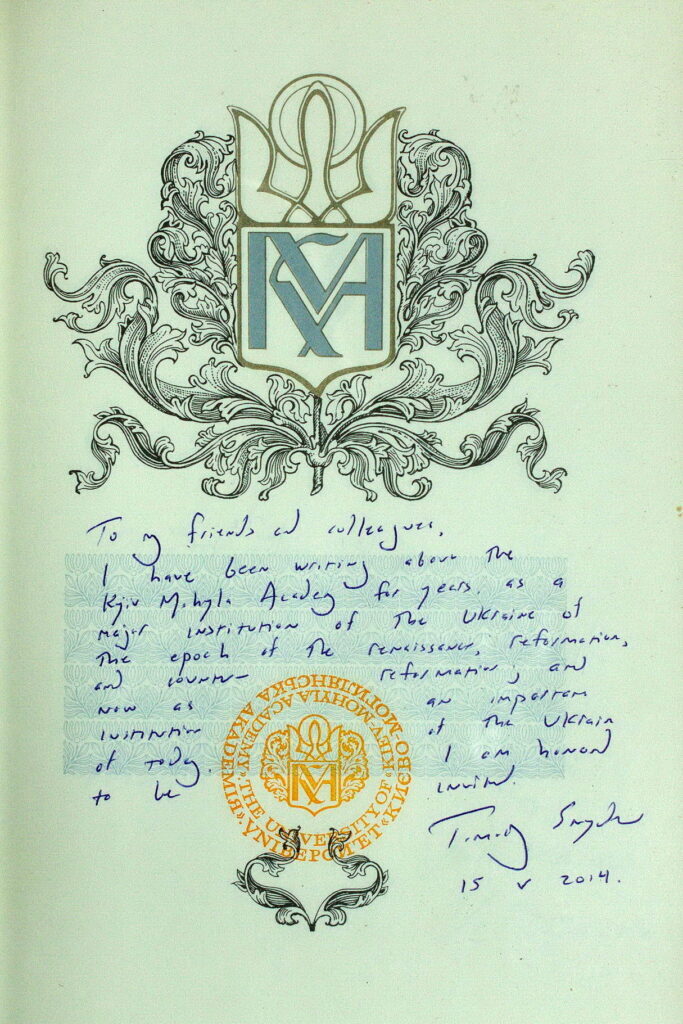 КМА
To my friends and colleagues,
I have been writing about the
Kyiv Mohyla Academy for years, as a
major institution of the Ukraine of
the epoch of the renaissance, reformation,
and counter- reformation; and
now as an important
institution of the Ukraine
of today. I am honored
to be invited.
Timothy Snyder
15 V 2014.
"THE UNIVERSITY OF "KIEV-MOHYLA ACADEMY"
УНІВЕРСИТЕТ «КИЄВО-МОГИЛЯНСЬКА АКАДЕМІЯ»
КМА